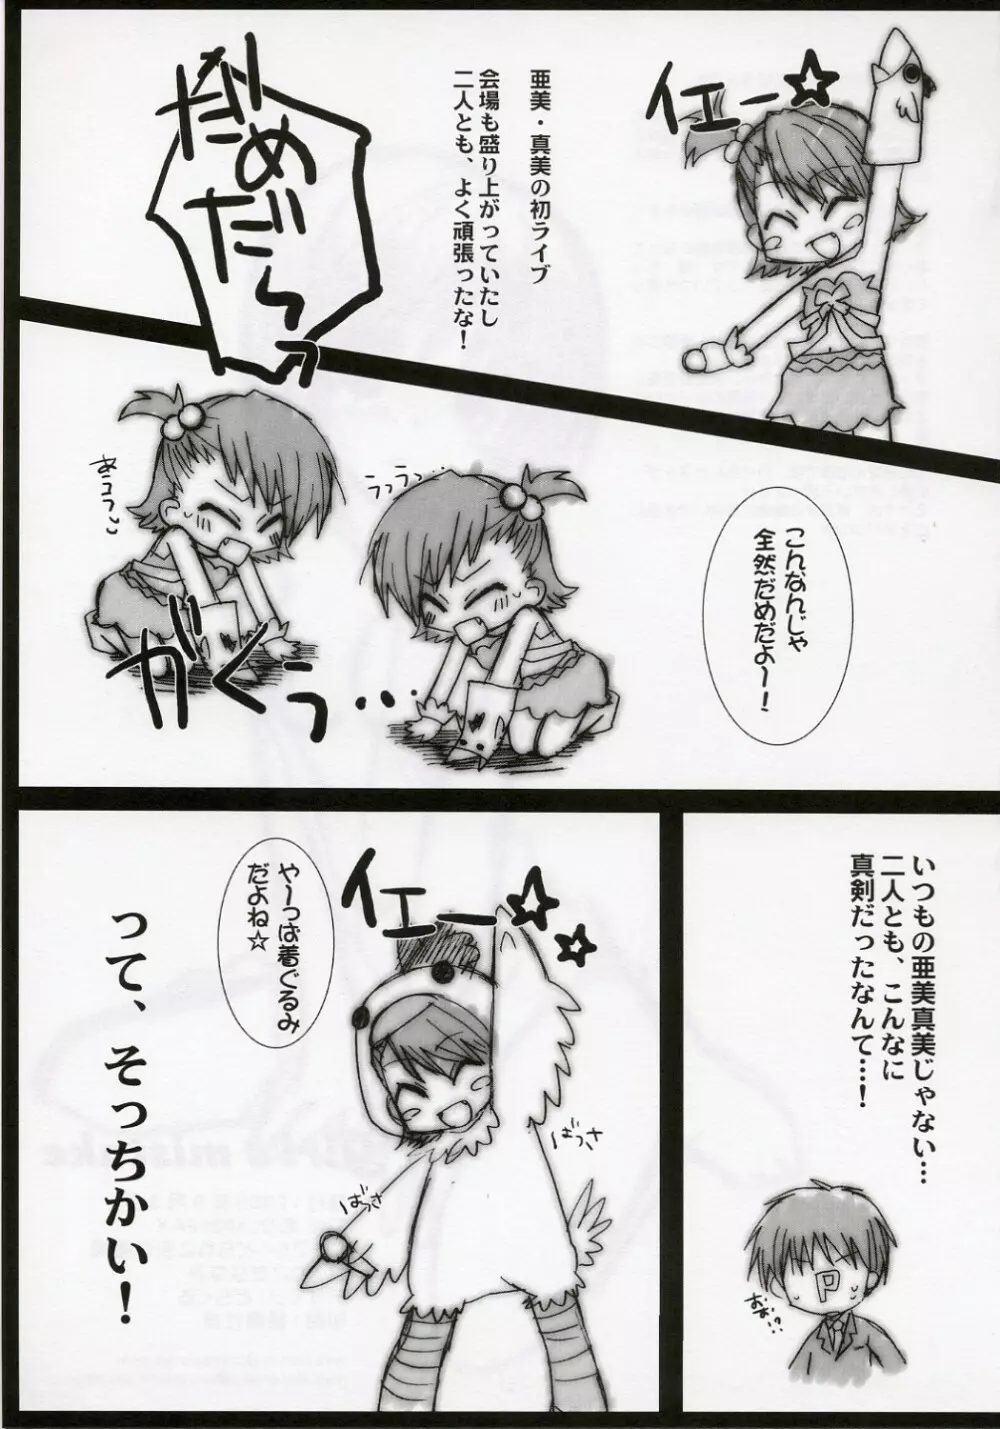 イエー☆
亜美・真美の初ライブ
会場も盛り上がっていたし
二人とも、よく頑張ったな！
だめ
だらっ
こんなんじゃ
全然だめだよ～！
うっうっ…
がくぅ…
いつもの亜美真美じゃない…
二人とも、こんなに
真剣だったなんて…！
おお!?
P
イエー☆
や～っぱ着ぐるみ
だよね☆
ばっさ
ばっさ
って、そっちかい！